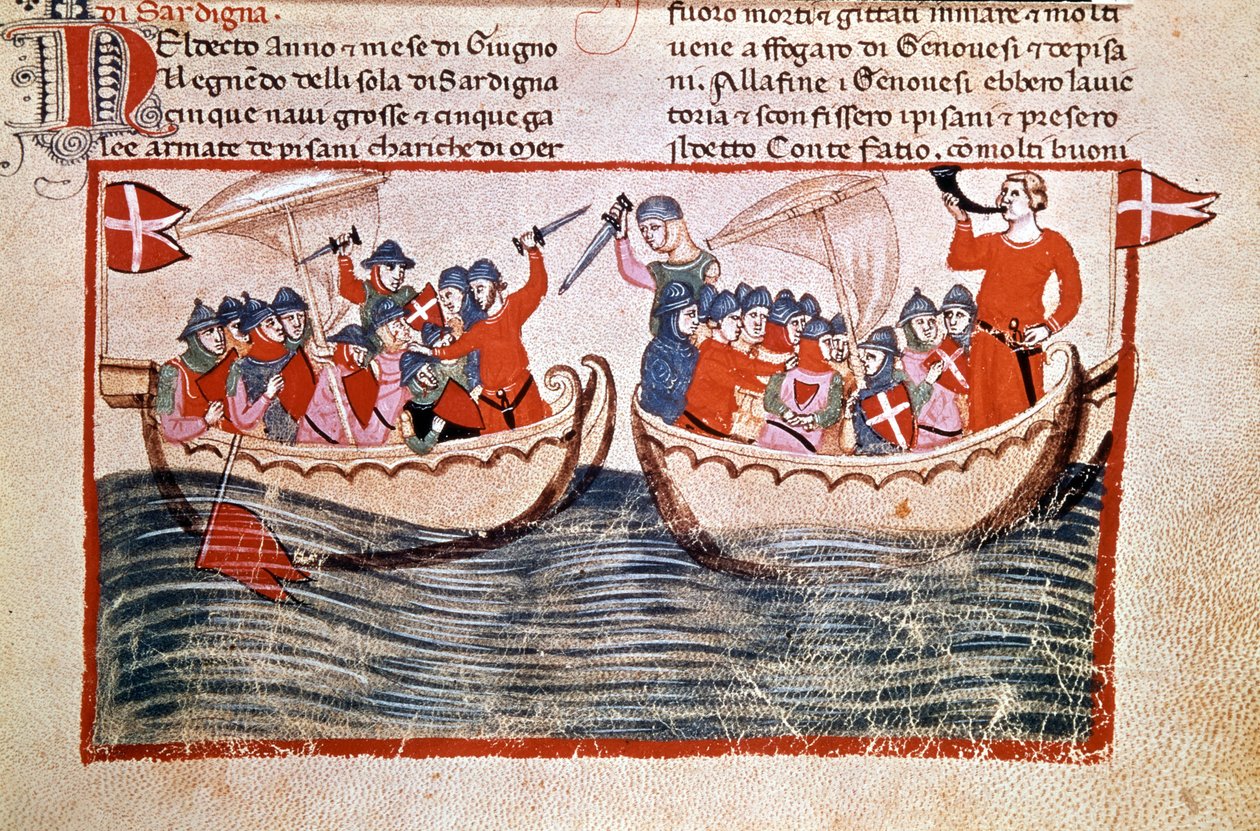 di Sardigna.
Nel decto Anno ⁊ mese di Giugno
Nel egnẽdo dell isola di Sardigna
cinque navi grosse ⁊ cinque ga
lee armate de pisani chariche di mer
fuoro morti ⁊ gittati inmare ⁊ molti
vene affogaro di Genovesi ⁊ de pisa
ni. Alla fine i Genovesi ebbero lavic
toria ⁊ sconfissero i pisani ⁊ presero
il detto Conte fatio. cõ molti buoni